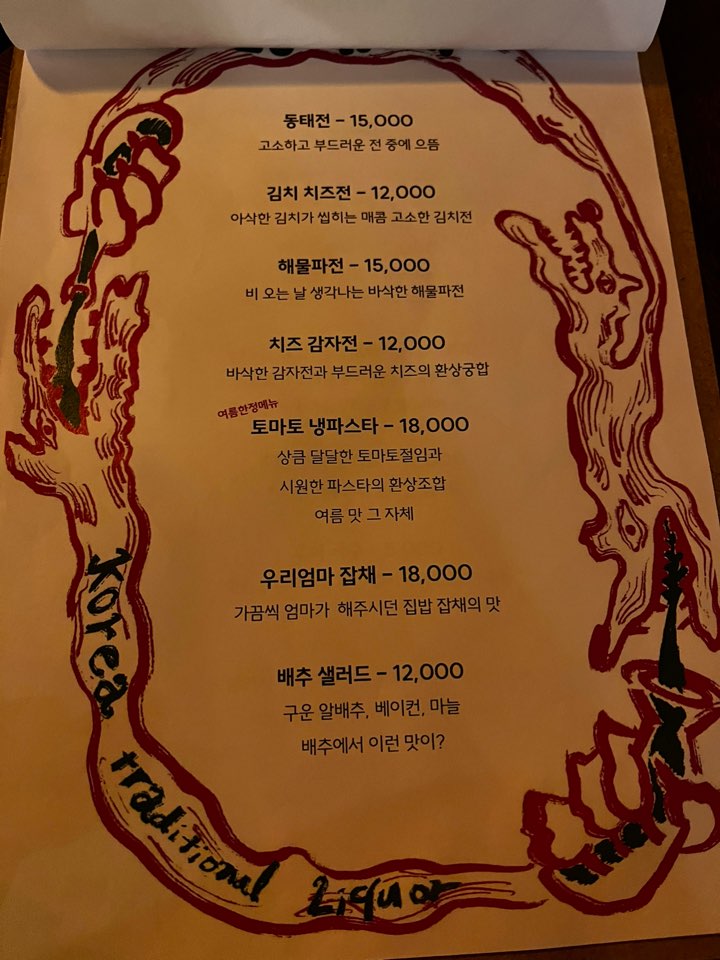 동태전 – 15,000
고소하고 부드러운 전 중에 으뜸
김치 치즈전 – 12,000
아삭한 김치가 씹히는 매콤 고소한 김치전
해물파전 – 15,000
비 오는 날 생각나는 바삭한 해물파전
치즈 감자전 – 12,000
바삭한 감자전과 부드러운 치즈의 환상궁합
여름한정메뉴
토마토 냉파스타 – 18,000
상큼 달달한 토마토절임과
시원한 파스타의 환상조합
여름 맛 그 자체
우리엄마 잡채 – 18,000
가끔씩 엄마가 해주시던 집밥 잡채의 맛
배추 샐러드 – 12,000
구운 알배추, 베이컨, 마늘
배추에서 이런 맛이?
Korea
traditional
Liquor